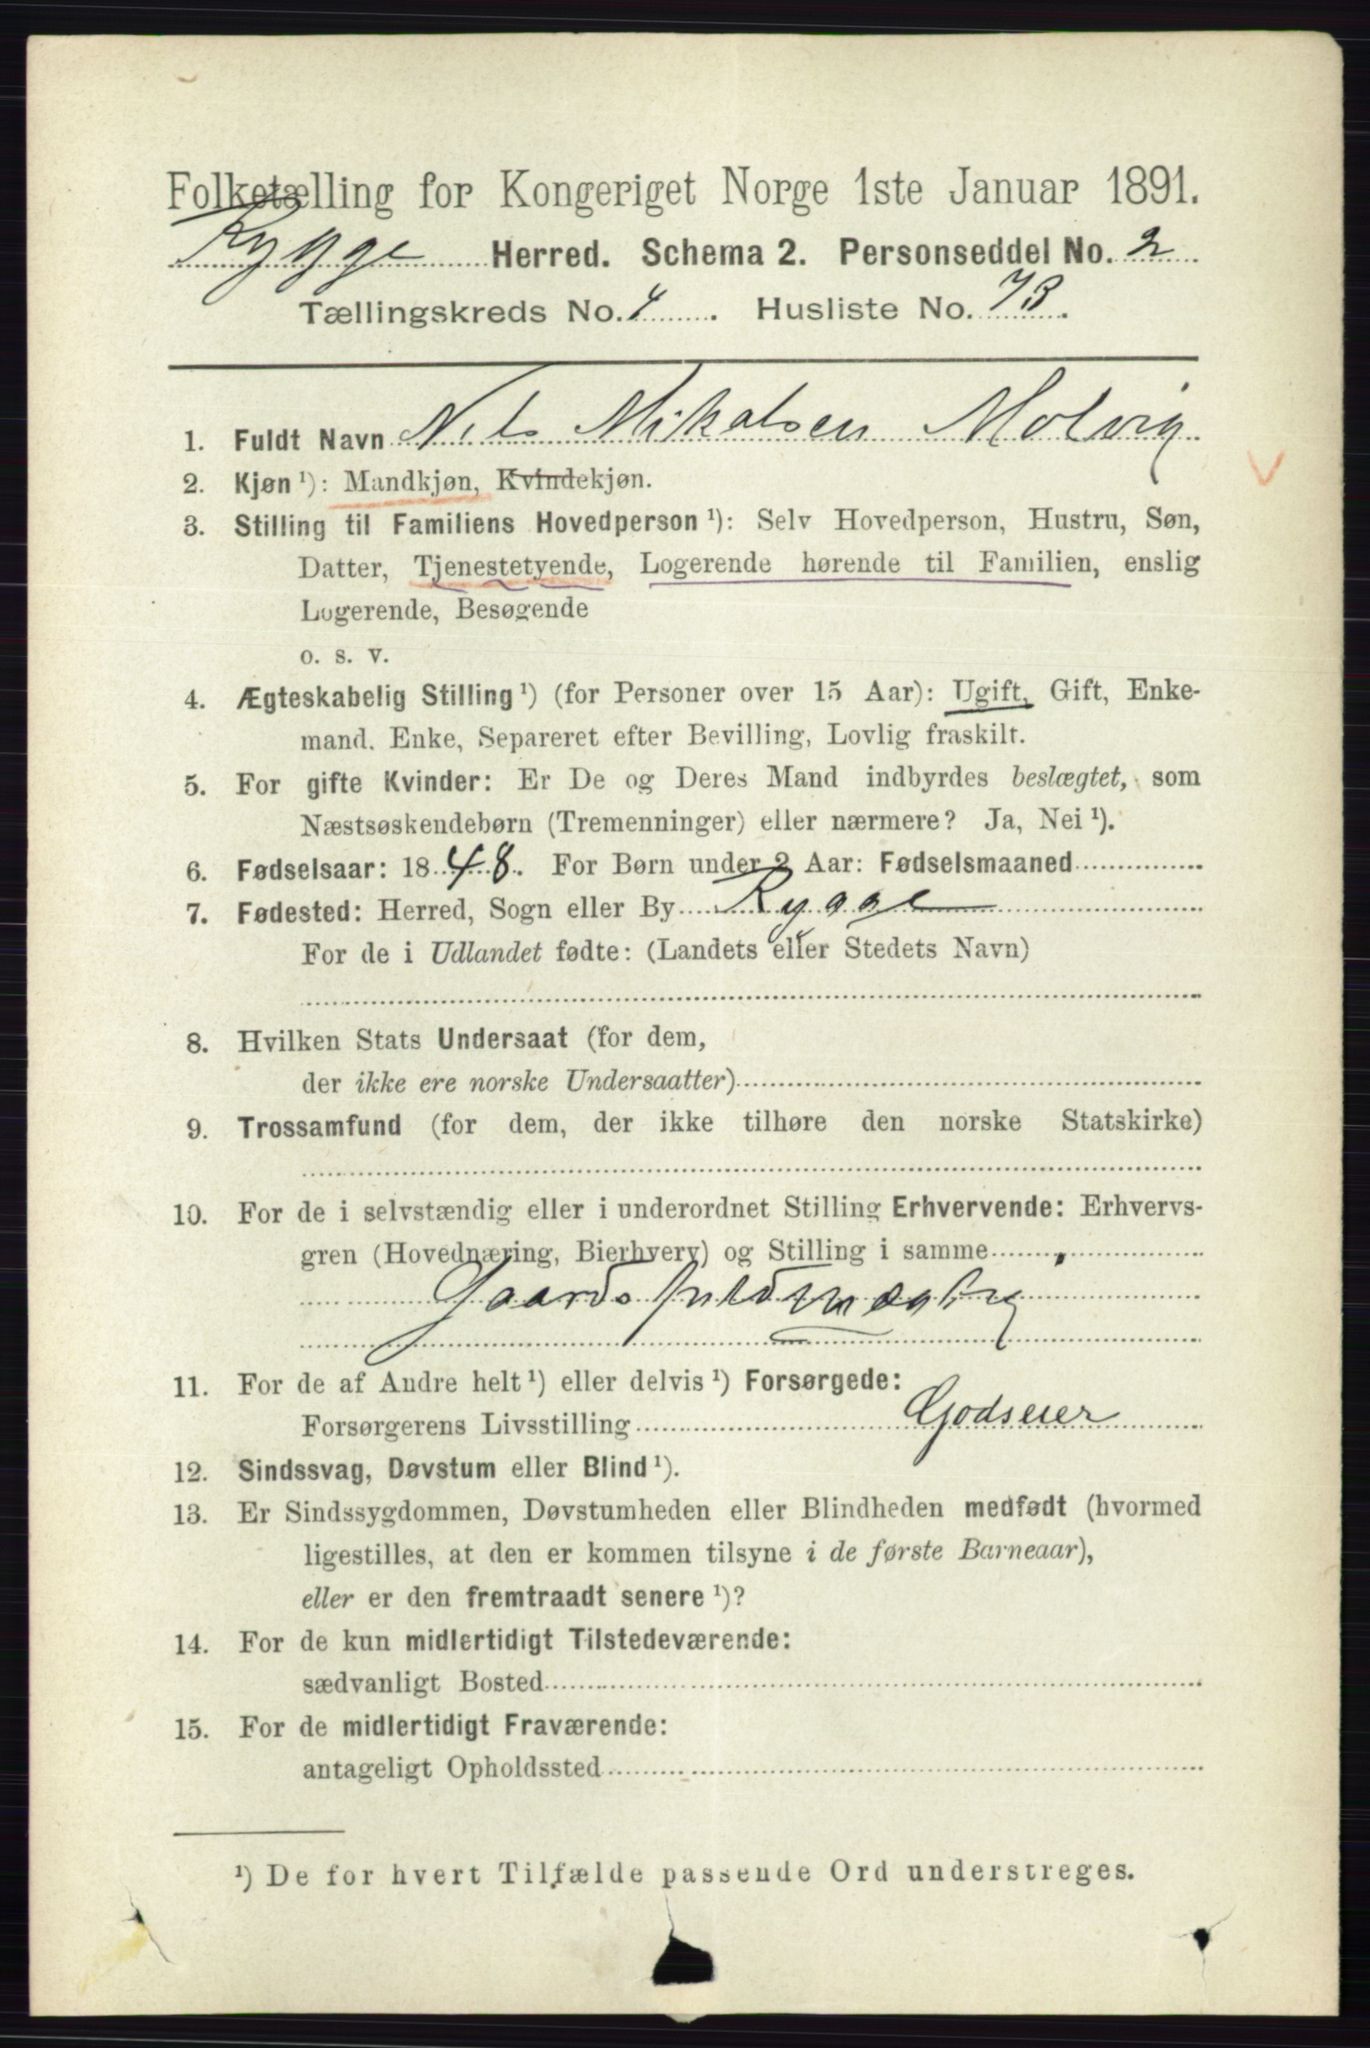 Folketælling for Kongeriget Norge 1ste Januar 1891.
Rygge Herred. Schema 2. Personseddel No. 2
Tællingskreds No. 4. Husliste No. 73.
1. Fuldt Navn Nils Mikalsen Molvig
2. Kjøn ¹): Mandkjøn, Kvindekjøn.
3. Stilling til Familiens Hovedperson ¹): Selv Hovedperson, Hustru, Søn,
Datter, Tjenestetyende, Logerende hørende til Familien, enslig
Logerende, Besøgende
o. s. v.
4. Ægteskabelig Stilling ¹) (for Personer over 15 Aar): Ugift, Gift, Enke-
mand, Enke, Separeret efter Bevilling, Lovlig fraskilt.
5. For gifte Kvinder: Er De og Deres Mand indbyrdes beslægtet, som
Næstsøskendebørn (Tremenninger) eller nærmere? Ja, Nei ¹).
6. Fødselsaar: 1848. For Børn under 2 Aar: Fødselsmaaned
7. Fødested: Herred, Sogn eller By Rygge
For de i Udlandet fødte: (Landets eller Stedets Navn)
8. Hvilken Stats Undersaat (for dem,
der ikke ere norske Undersaatter)
9. Trossamfund (for dem, der ikke tilhøre den norske Statskirke)
10. For de i selvstændig eller i underordnet Stilling Erhvervende: Erhvervs-
gren (Hovednæring, Bierhverv) og Stilling i samme
11. For de af Andre helt ¹) eller delvis ¹) Forsørgede:
Forsørgerens Livsstilling Godseier
12. Sindssvag, Døvstum eller Blind ¹).
13. Er Sindssygdommen, Døvstumheden eller Blindheden medfødt (hvormed
ligestilles, at den er kommen tilsyne i de første Barneaar),
eller er den fremtraadt senere ¹)?
14. For de kun midlertidigt Tilstedeværende:
sædvanligt Bosted
15. For de midlertidigt Fraværende:
antageligt Opholdssted
¹) De for hvert Tilfælde passende Ord understreges.